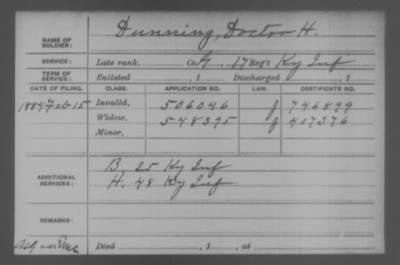 NAME OF SOLDIER: Dunning, Doctor H.
SERVICE: Late rank, Co. G, 17 Reg't Ky Inf
TERM OF SERVICE: Enlisted , 1 Discharged , 1
DATE OF FILING. CLASS. APPLICATION NO. LAW. CERTIFICATE NO.
1884 Feb 15 Invalid, 506046 J 746899
Widow, 548395 J 417376
Minor,
ADDITIONAL SERVICES: B. 25 Ky Inf
H. 48 Ky Inf
REMARKS:
Died , 1 , at